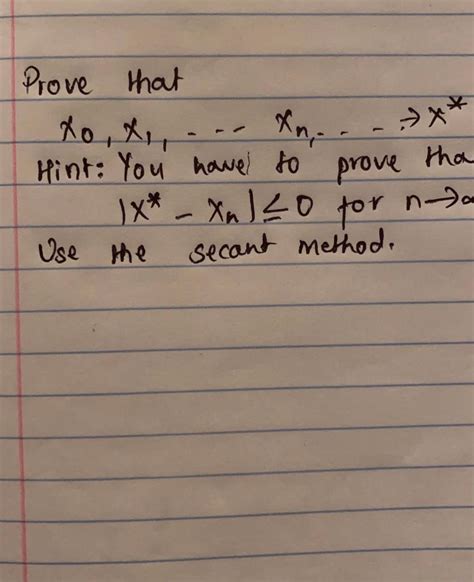 Prove that
x₀, x₁, ---- xₙ, - - - . → x*
Hint: You have to prove tha
|x* - xₙ| ≤ 0 for n→
Use the secant method.